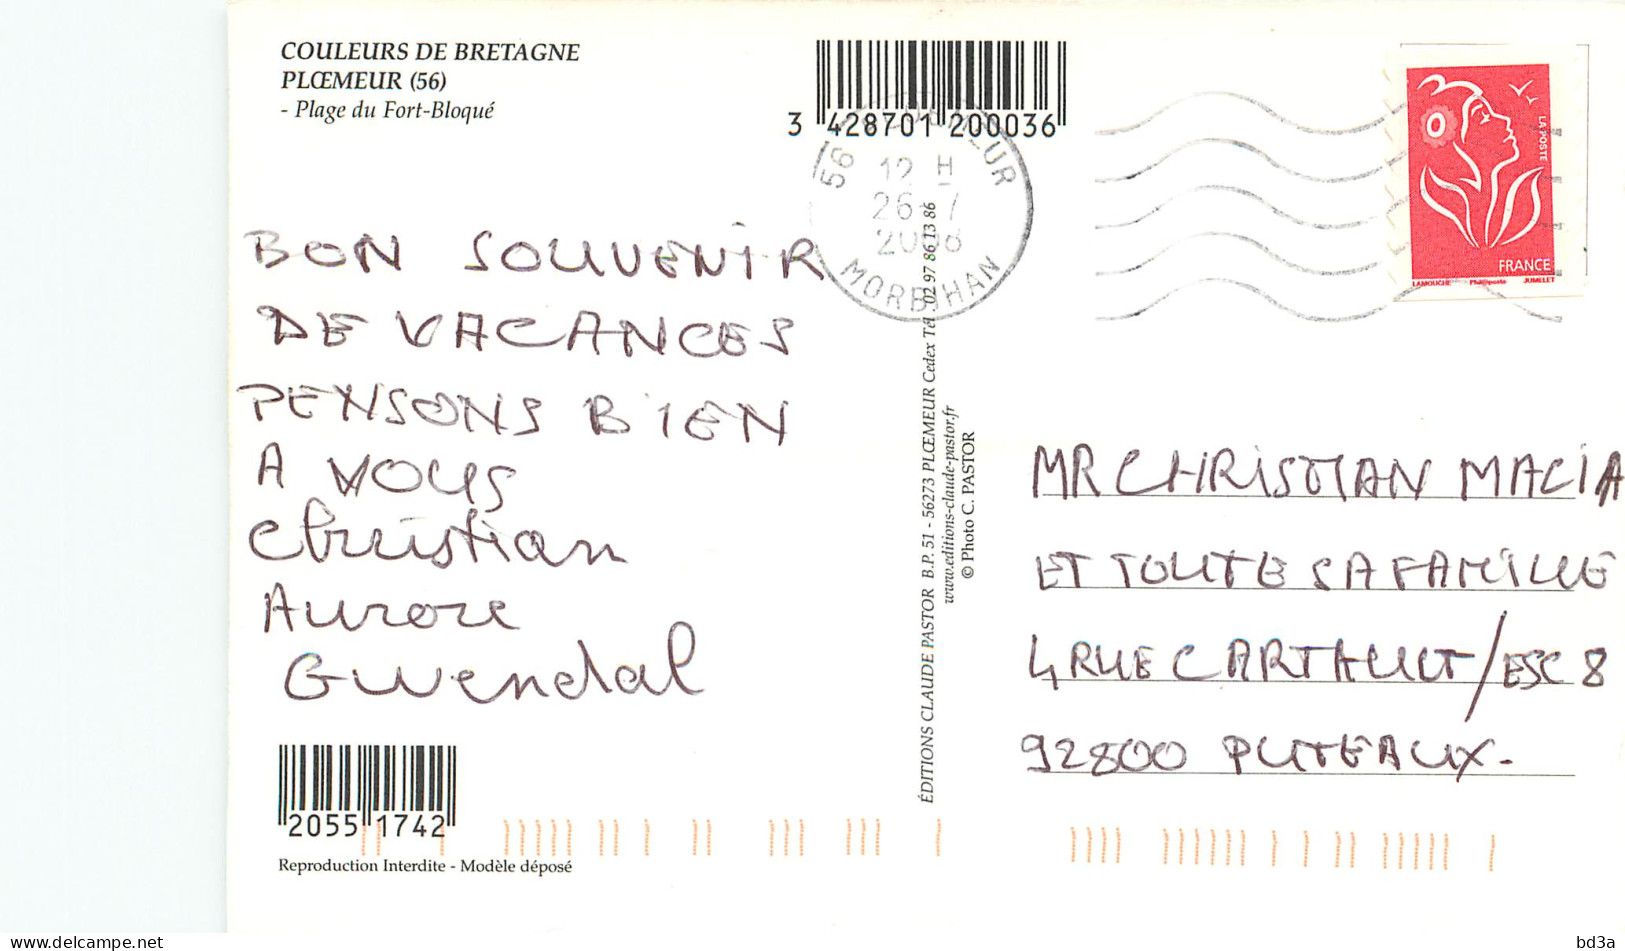 COULEURS DE BRETAGNE
PLŒMEUR (56)
- Plage du Fort-Bloqué
3 428701 200036
56
MEUR
12 H
26-7
MORBIHAN
LA POSTE
FRANCE
LAMOUCHE Phil@poste JUMELET
BON SOUVENIR
DE VACANCES
PENSONS BIEN
A VOUS
Christian
Aurore
Gwendal
2055 1742
Reproduction Interdite - Modèle déposé
ÉDITIONS CLAUDE PASTOR B.P. 51 - 56273 PLŒMEUR Cedex Tél. 02 97 86 13 86
www.editions-claude-pastor.fr
© Photo C. PASTOR
MR CHRISTIAN MACIA
ET TOUTE SA FAMILLE
4 RUE CARTAULT / ESC 8
92800 PUTEAUX.
bd3a